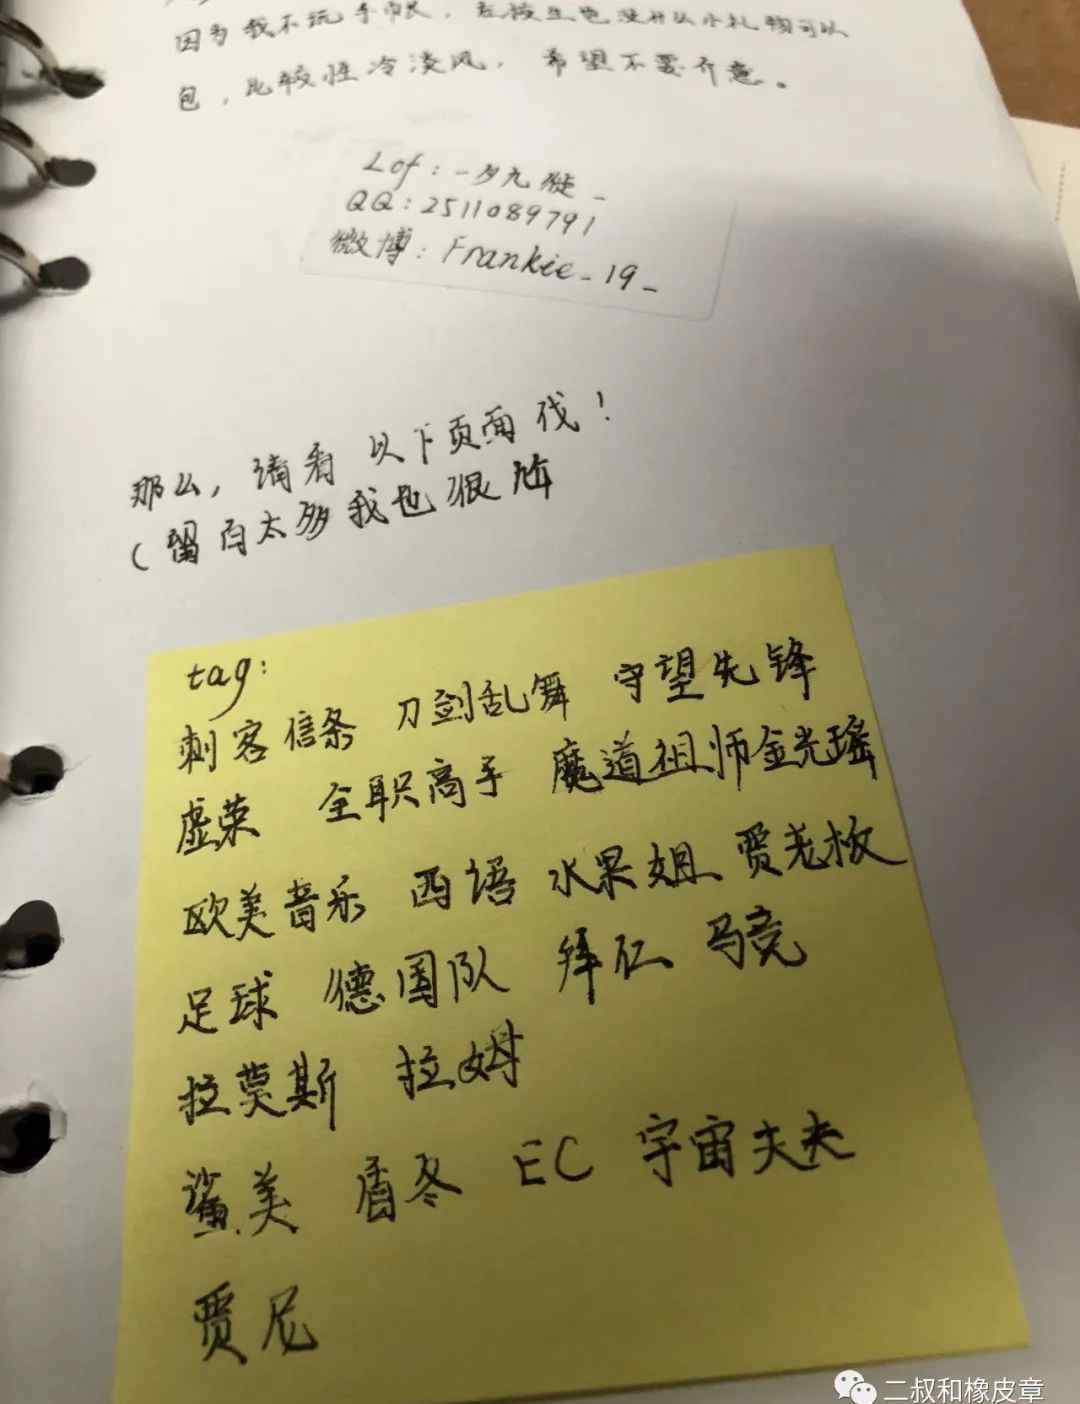 因为我不玩手帐，在校生也没什么小礼物可以
包，比较性冷淡风，希望不要介意。
Lof：-夕九漇_
QQ：2511089791
微博：Frankie_19_
那么，请看以下页面伐！
（留白太多我也很尴
tag：
刺客信条 刀剑乱舞 守望先锋
虚荣 全职高手 魔道祖师金光瑶
欧美音乐 西语 水果姐 贾老板
足球 德国队 拜仁 马竞
拉莫斯 拉姆
鲨美 盾冬 EC 宇宙夫夫
贾尼
二叔和橡皮章